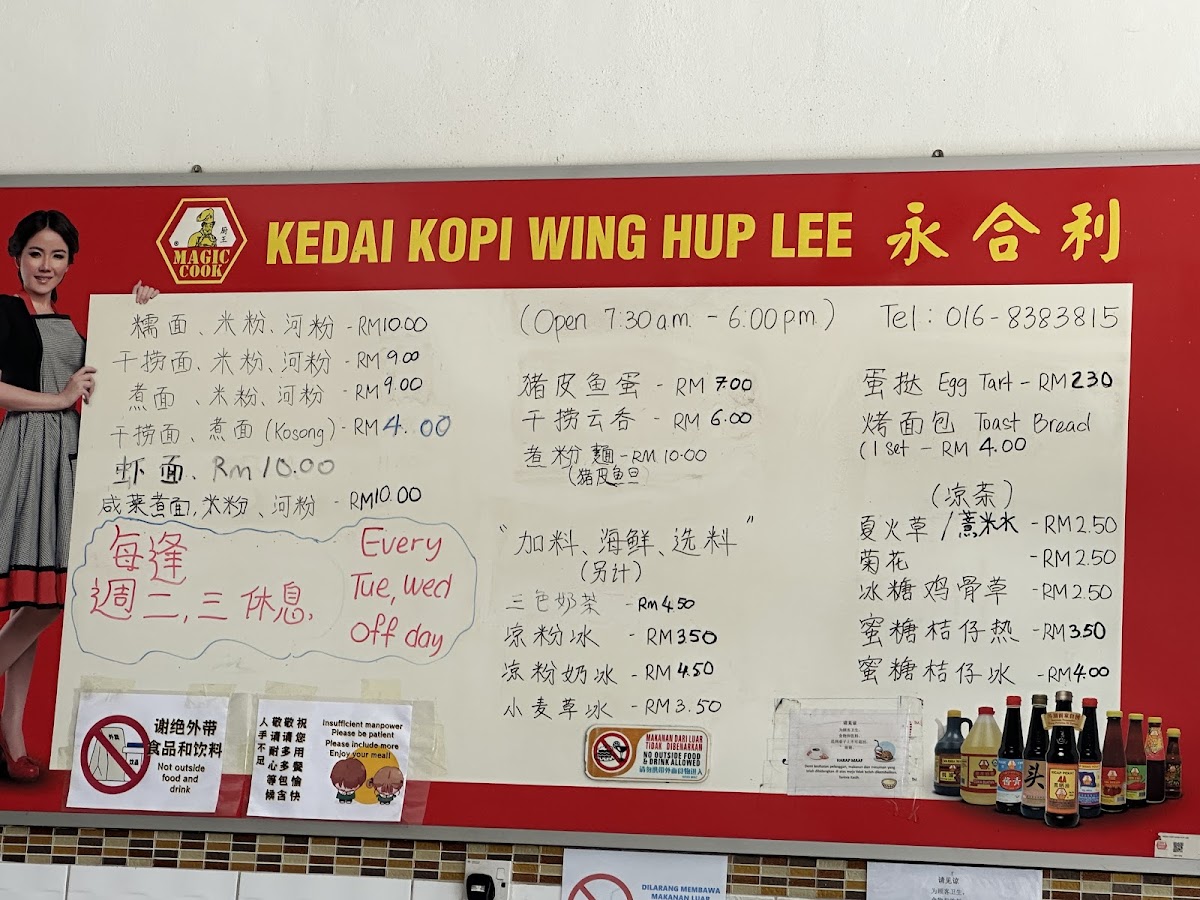 厨王
MAGIC
COOK
KEDAI KOPI WING HUP LEE 永合利
糯面、米粉、河粉 - RM10.00
干捞面、米粉、河粉 - RM 9.00
煮面、米粉、河粉 - RM 9.00
干捞面、煮面 (Kosong) - RM 4.00
虾面、Rm 10.00
咸菜煮面,米粉、河粉 - RM10.00
每逢
週二,三休息,
Every
Tue, Wed
Off day
(Open 7:30 a.m. - 6:00 pm.)
猪皮鱼蛋 - RM 7.00
干捞云吞 - RM 6.00
煮粉麵 - RM 10.00
(猪皮鱼旦)
"加料、海鲜、选料"
(另计)
三色奶茶 - RM 4.50
凉粉冰 - RM 3.50
凉粉奶冰 - RM 4.50
小麦草冰 - RM 3.50
Tel: 016-8383815
蛋挞 Egg Tart - RM 2.30
烤面包 Toast Bread
(1 set - RM 4.00
(凉茶)
夏火草/薏米水 - RM 2.50
菊花 - RM 2.50
冰糖鸡骨草 - RM 2.50
蜜糖桔仔热 - RM 3.50
蜜糖桔仔冰 - RM 4.00
谢绝外带
食品和饮料
Not outside
food and
drink
人手不足
敬请耐心等候
敬请多多包含
祝您用餐愉快
Insufficient manpower
Please be patient
Please include more
Enjoy your meal!
MAKANAN DARI LUAR
TIDAK DIBENARKAN
NO OUTSIDE FOOD
& DRINK ALLOWED
请勿携带外面食物进入
请见谅
HARAP MAAF
DILARANG MEMBAWA
MAKANAN LUAR
请见谅
为顾客卫生,